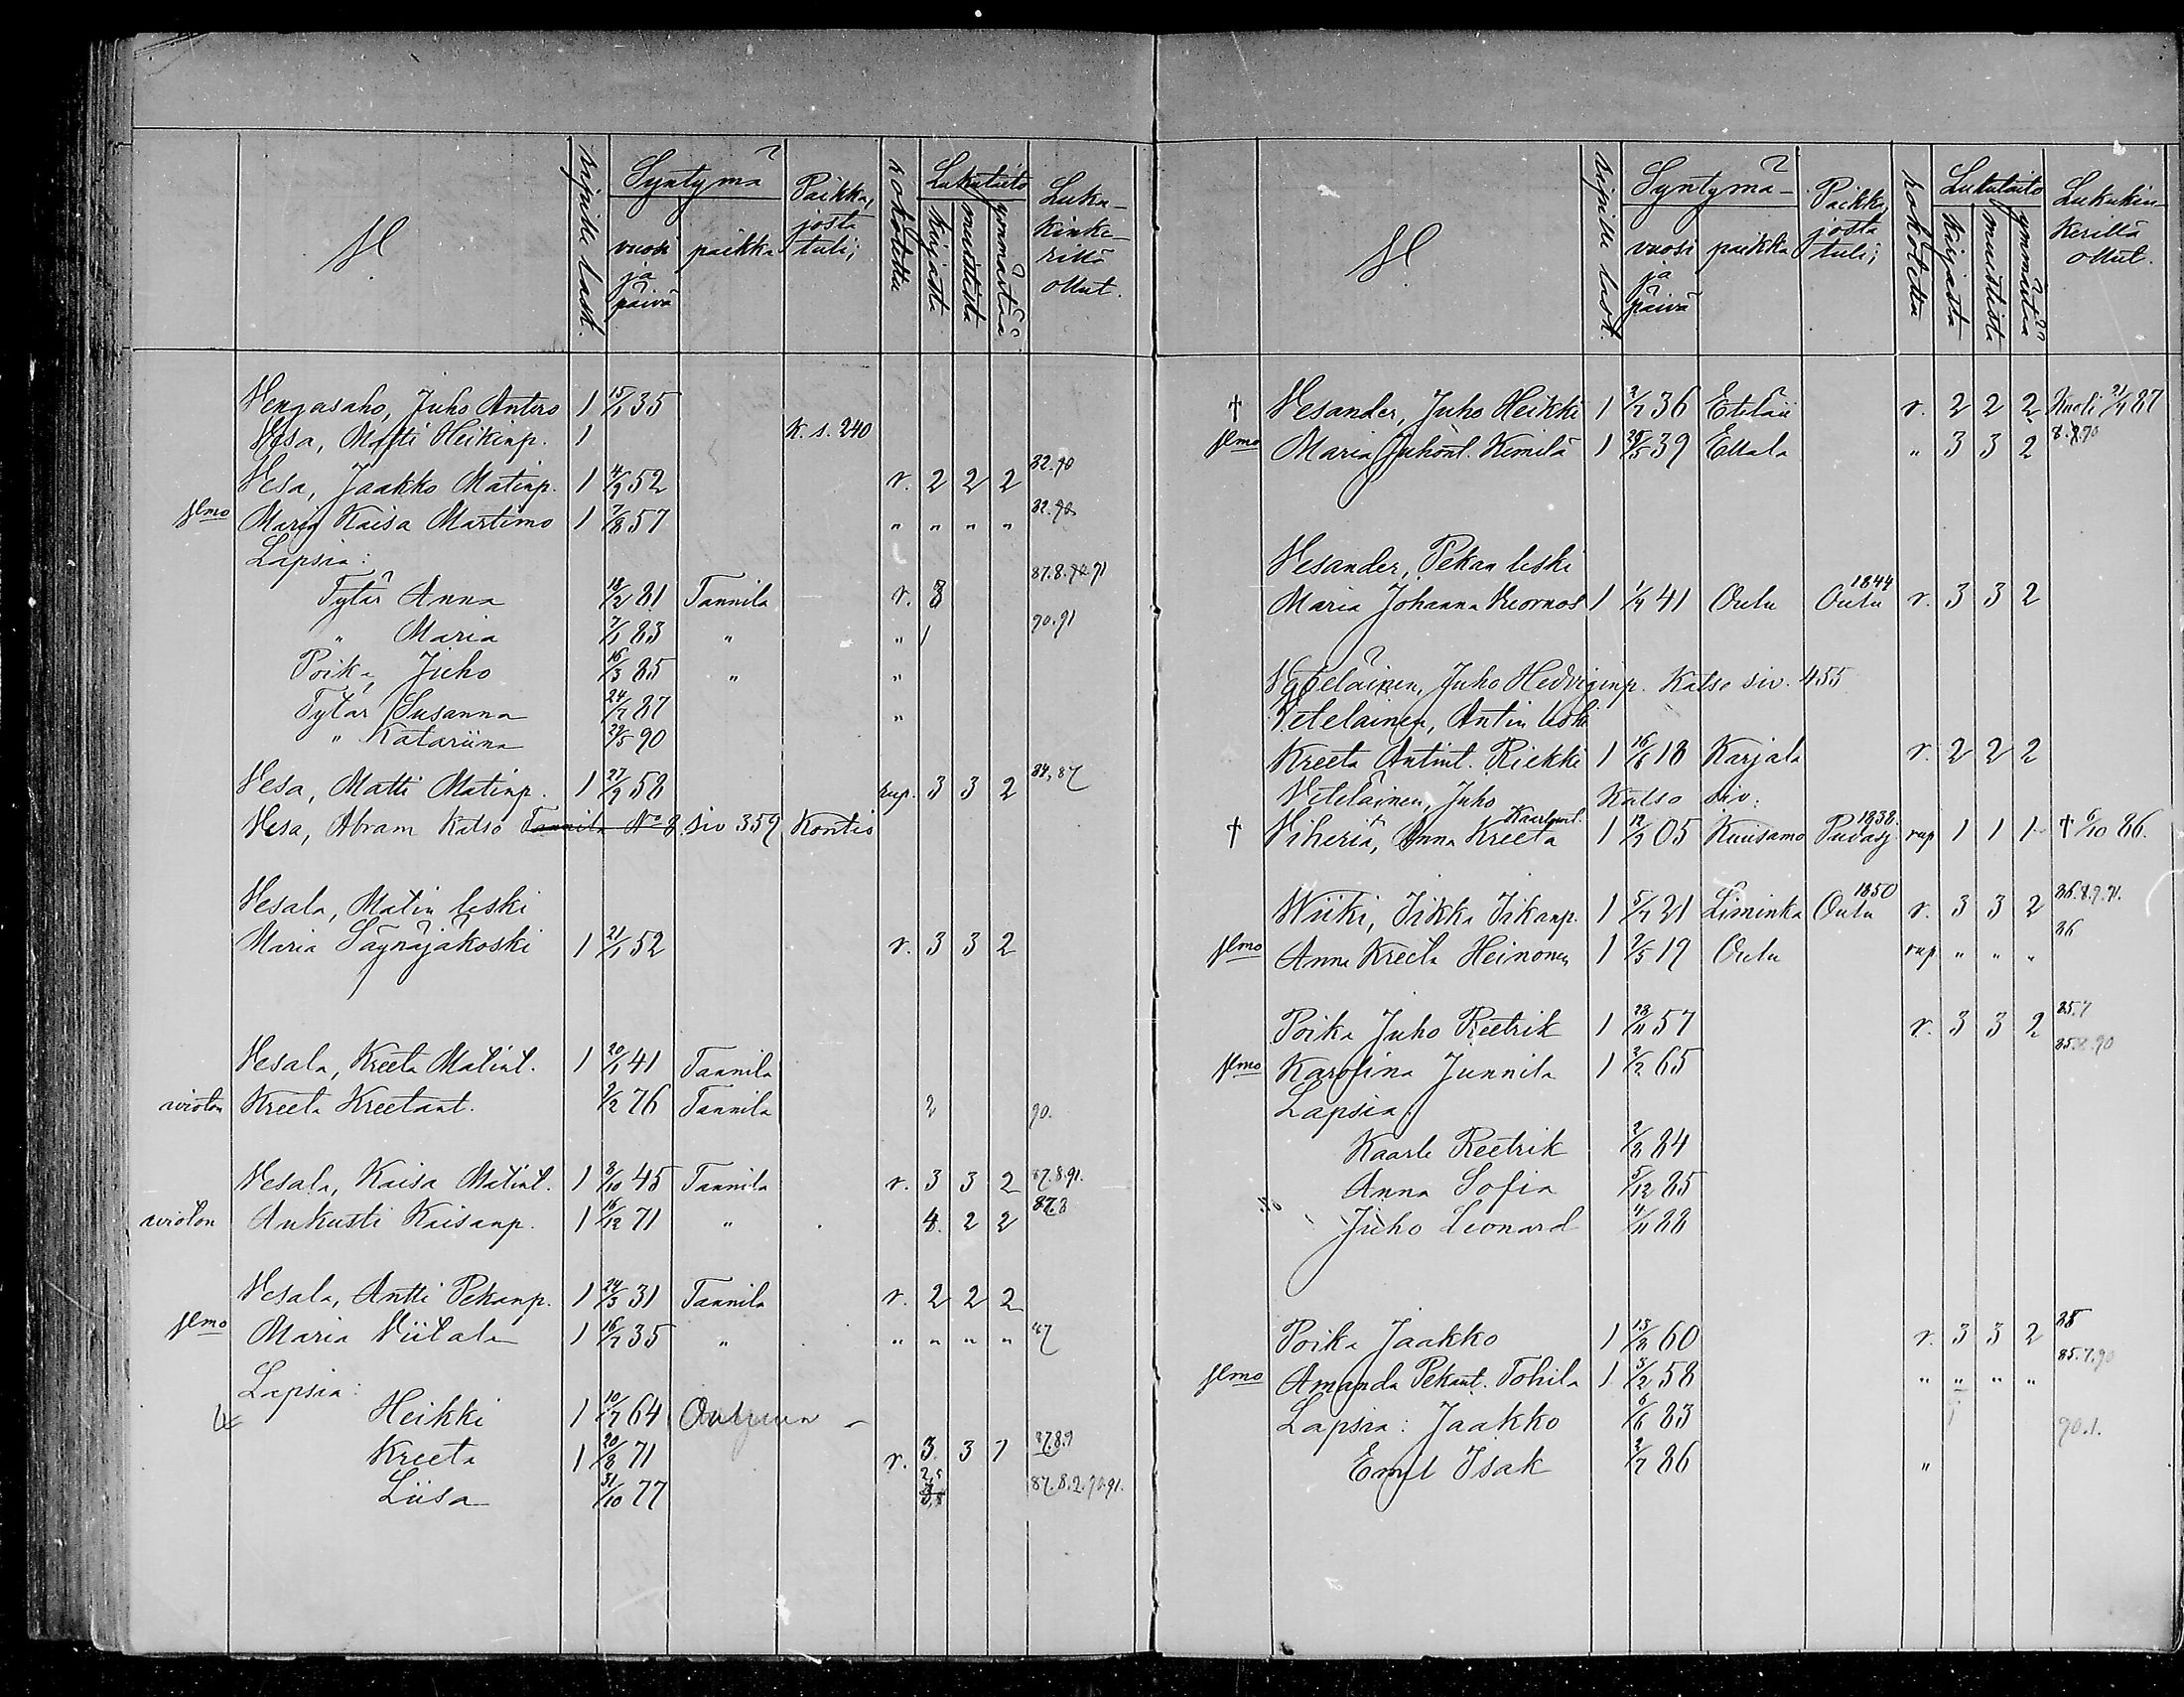 Syntymä
Paikka, josta tuli;
rokotettu
Lukutaito
Luku-kinke-rillä ollut.
ripille lask.
vuosi ja päivä
paikka
kirjasta
muistista
ymmärtää
Vengasaho, Juho Antero 1 15/1 35
Vesa, Matti Heikinp. 1 K. s. 240
Vesa, Jaakko Matinp. 1 4/9 52 r. 2 2 2 82.90
Vmo Maria Kaisa Martimo 1 7/8 57 " " " " 82.90
Lapsia:
Tytär Anna 18/2 81 Tannila r. 3 87.8.90.91
" Maria 7/1 83 " " 1 90.91
Poika, Juho 16/3 85 " "
Tytär Susanna 24/7 87 "
" Katariina 29/5 90
Vesa, Matti Matinp. 1 27/9 58 rup. 3 3 2 84,87
Vesa, Abram Katso Tannila No 8 siv 359 Kontio
Vesala, Matin leski
Maria Säynäjäkoski 1 21/1 52 r. 3 3 2
Vesala, Kreeta Matint. 1 20/1 41 Tannila
avioton Kreeta Kreetant. 2/2 76 Tannila 2 90.
Vesala, Kaisa Matint. 1 8/10 45 Tannila r. 3 3 2 87.8.91.
avioton Aukusti Kaisanp. 1 16/12 71 " 4. 2 2 87.8
Vesala, Antti Pekanp. 1 24/3 31 Tannila r. 2 2 2
Vmo Maria Viitala 1 16/7 35 " " " " " 87
Lapsia:
Heikki 1 10/7 64
Kreeta 1 20/8 71 r. 3. 3 1 87.8.9
Liisa 31/10 77 87.8.2.90.91.
Syntymä-
Paikka, josta tuli;
rokotettu
Lukutaito
Lukukin-kerillä ollut.
ripille lask.
vuosi ja päivä
paikka
kirjasta
muistista
ymmärtää
† Vesander, Juho Heikki 1 2/7 36 Eteläii r. 2 2 2 Kuoli 21/4 87
Vmo Maria Juhont. Kemilä 1 25/5 39 Ettala " 3 3 2 8.8.90
Vesander, Pekan leski
Maria Johanna Kuornos 1 1/9 41 Oulu Oulu 1844 r. 3 3 2
Veteläinen, Juho Hedviginp. Katso siv. 455
Veteläinen, Antin leski
Kreeta Antint. Riekki 1 16/6 18 Karjala r. 2 2 2
Veteläinen, Juho Katso siv:
† Viheriä, Anna Kreeta Kaarlont. 1 12/9 05 Kuusamo Pudasj. 1838 rup 1 1 1 † 6/10 86.
Wiiki, Iikka Iikanp. 1 5/7 21 Liminka Oulu 1850 r. 3 3 2 86.8.9.91.
Vmo Anna Kreeta Heinonen 1 2/5 19 Oulu rup " " " 86
Poika Juho Reetrik 1 23/11 57 r. 3 3 2 85.7
Vmo Karolina Junnila 1 2/2 65 85.8.90
Lapsia:
Kaarle Reetrik 2/8 84
Anna Sofia 5/12 85
Juho Leonard 4/11 88
Poika Jaakko 1 15/8 60 r. 3 3 2 88
Vmo Amanda Pekant. Tohila 1 3/2 58 " " " " 85.7.90
Lapsia: Jaakko 6/6 83 90.1.
Emil Isak 2/7 86 "